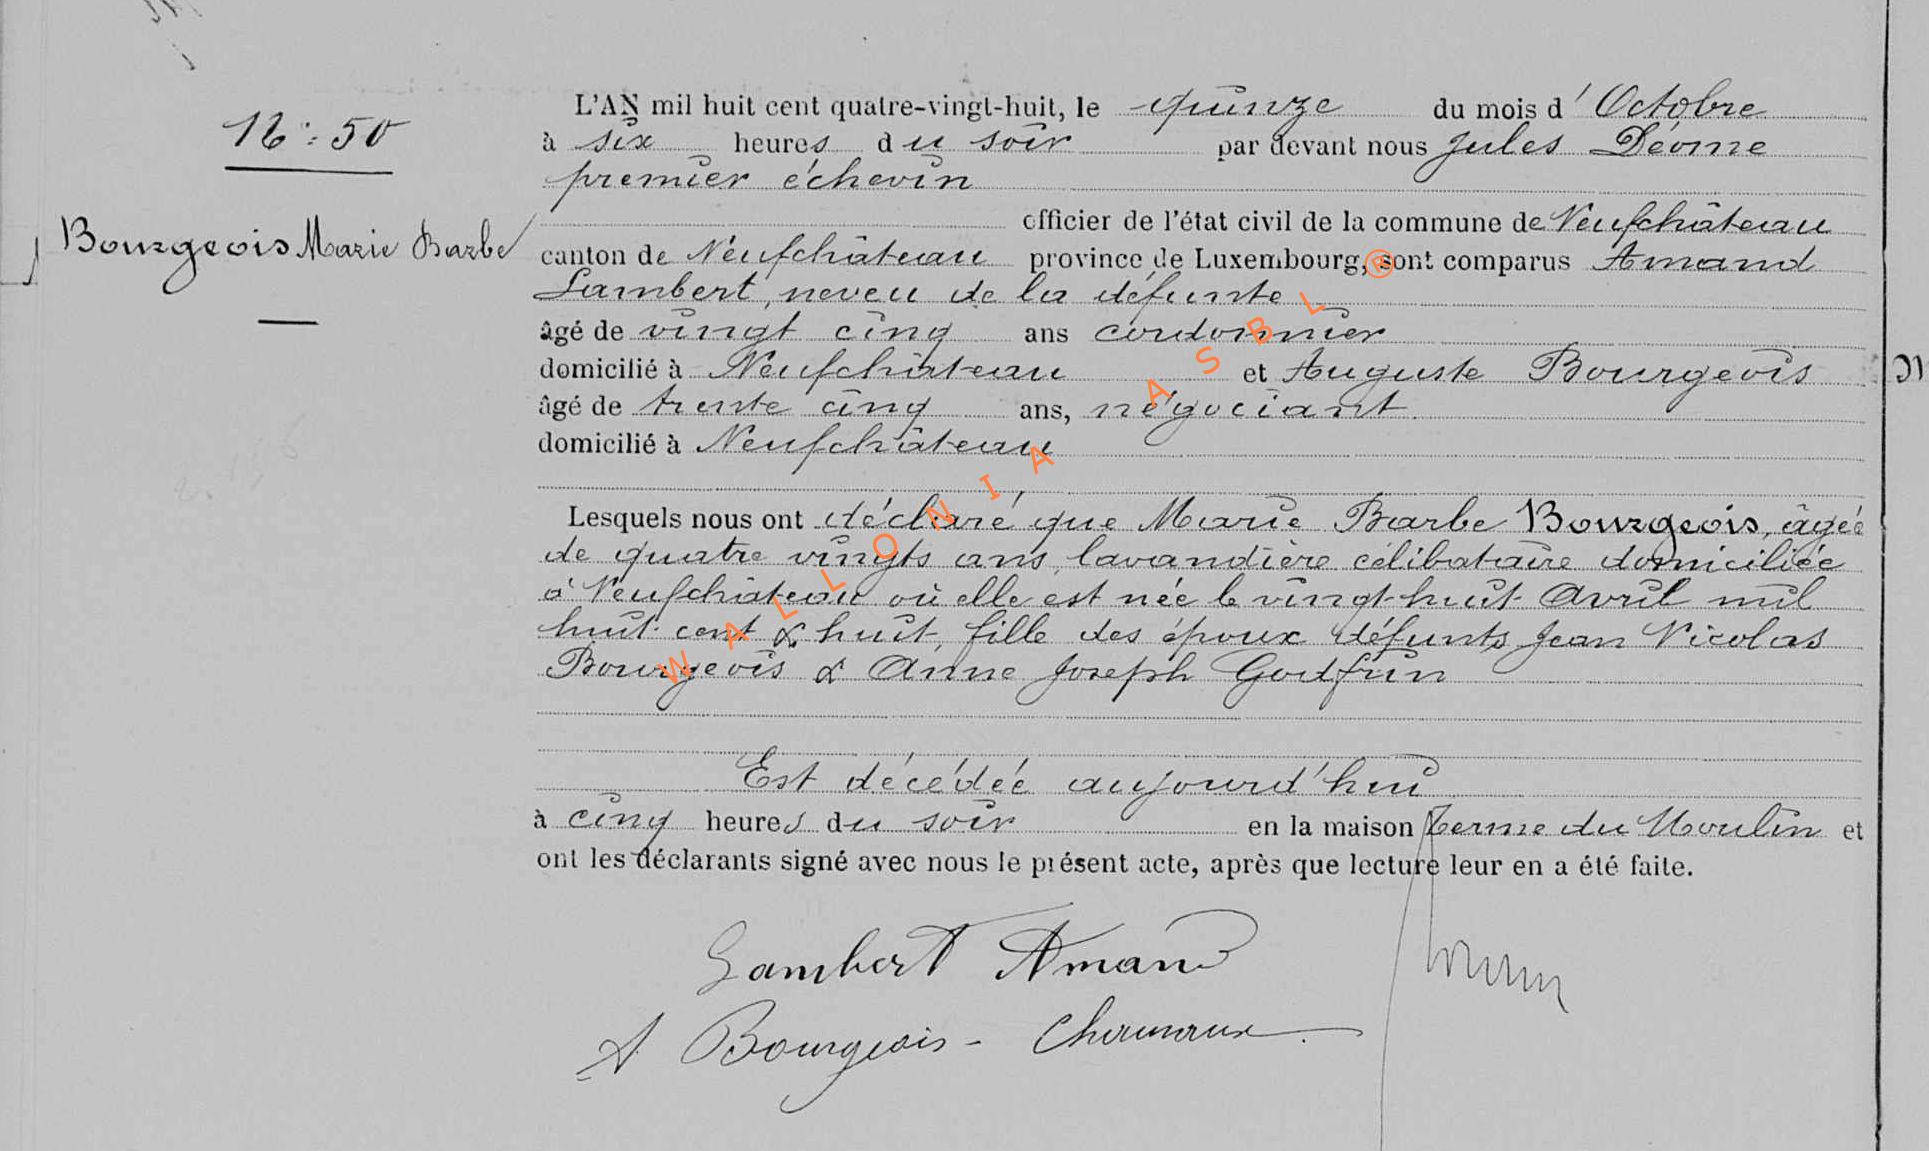 N°: 50
Bourgeois Marie Barbe
L'AN mil huit cent quatre-vingt-huit, le quinze du mois d'Octobre
à six heures du soir par devant nous Jules Déome
premier échevin
officier de l'état civil de la commune de Neufchâteau
canton de Neufchâteau province de Luxembourg, sont comparus Amand
Lambert, neveu de la défunte
âgé de vingt cinq ans cordonnier
domicilié à Neufchâteau et Auguste Bourgeois
âgé de trente cinq ans, négociant.
domicilié à Neufchâteau
Lesquels nous ont déclaré que Marie Barbe Bourgeois, âgée
de quatre vingts ans, lavandière célibataire domiciliée
à Neufchâteau où elle est née le vingt-huit Avril mil
huit cent & huit, fille des époux défunts Jean Nicolas
Bourgeois & Anne Joseph Godfrin
Est décédée aujourd'hui
à cinq heures du soir en la maison Terme du Moulin et
ont les déclarants signé avec nous le présent acte, après que lecture leur en a été faite.
Lambert Amand
A Bourgeois -
WALLONIA ASBL ®